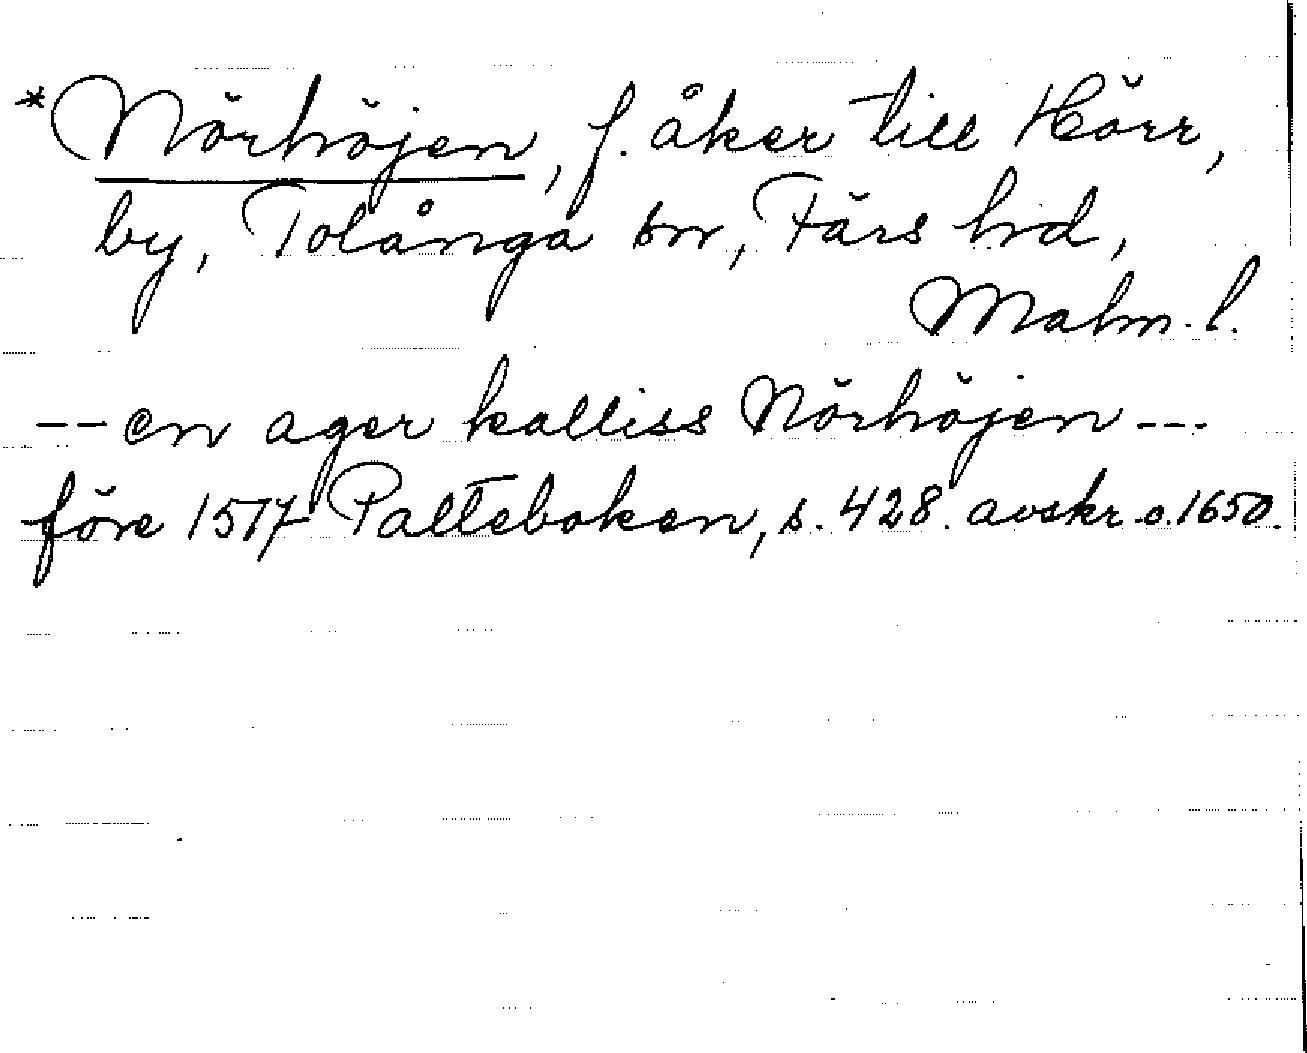 *Nörhöjen, f. åker till Hörr,
by, Tolånga sn, Färs hd,
Malm. l.
-- en ager kalliss Nörhöjen ---
före 1517 Palteboken, s. 428. avskr. o. 1650.